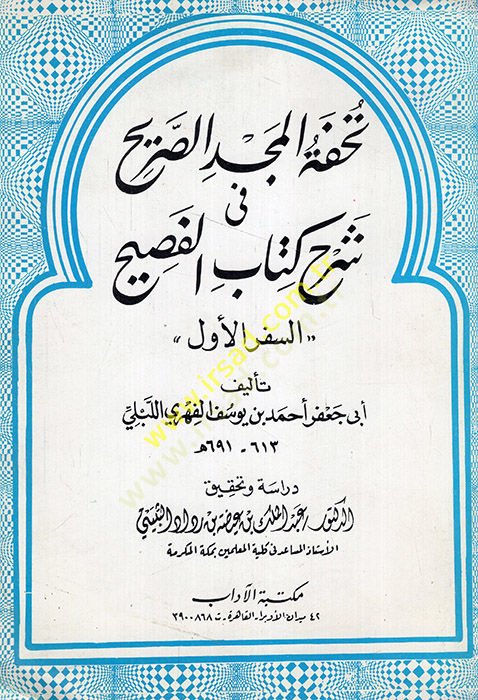 تُحْفَةُ المَجْدِ الصَّرِيحِ
فِى
شَرْحِ كِتَابِ الفَصِيحِ
« السفر الأول »
تأليف
أبى جعفر أحمد بن يوسف الفهري اللبلي
٦١٣ - ٦٩١ هـ
دراسة وتحقيق
الدكتور / عبد الملك بن عيضة بن رداد الثبيتي
الأستاذ المساعد فى كلية المعلمين بمكة المكرمة
مكتبة الآداب
٤٢ ميدان الأوبرا - القاهرة ت ٣٩٠٠٨٦٨
www.irsad.com.tr